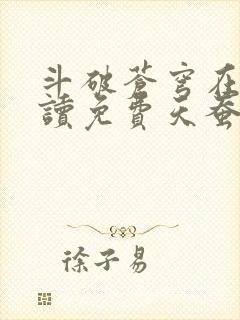 斗破蒼穹在
讀免費天蚕
徐子易